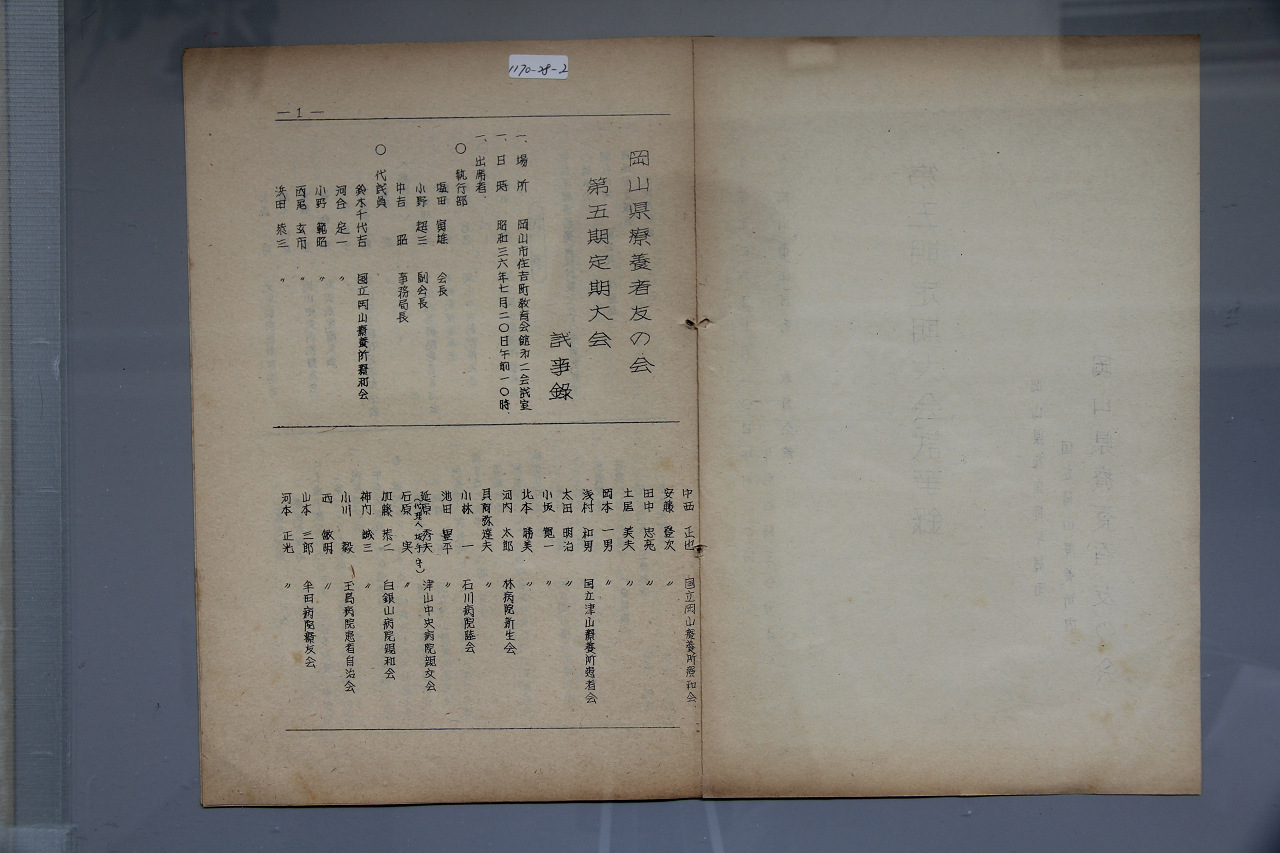 1170-28-2
— 1 —
岡山県療養者友の会
第五期定期大会
試事録
一、場所 岡山市住吉町教育会館才二会試室
一、日時 昭和三六年七月二〇日午前一〇時、
一、出席者、
〇 執行部
塩田 寅雄 会長
小野 超三 副会長
中吉 昭 事務局長
〇 代試員
鈴木千代吉 国立岡山療養所療和会
河合 定一 〃
小野 範昭 〃
西尾 玄市 〃
浜田 泰三 〃
中西 正也 国立岡山療養所療和会
安藤 登次 〃
田中 忠亮 〃
土居 美夫 〃
岡本 一男 〃
浅村 和男 国立津山療養所患者会
太田 明治 〃
小坂 寛一 〃
北本 勝美 〃
河内 太郎 林病院新生会
貝阿弥達夫 〃
小林 一 石川病院睦会
池田 里平 〃
延原 秀夫 津山中央病院親交会
石原 実 〃
加藤 泰二 白銀山病院銀和会
神门 誠三 〃
小川 毅 玉島病院患者自治会
西 敏明 〃
山本 三郎 半田病院療友会
河本 正光 〃